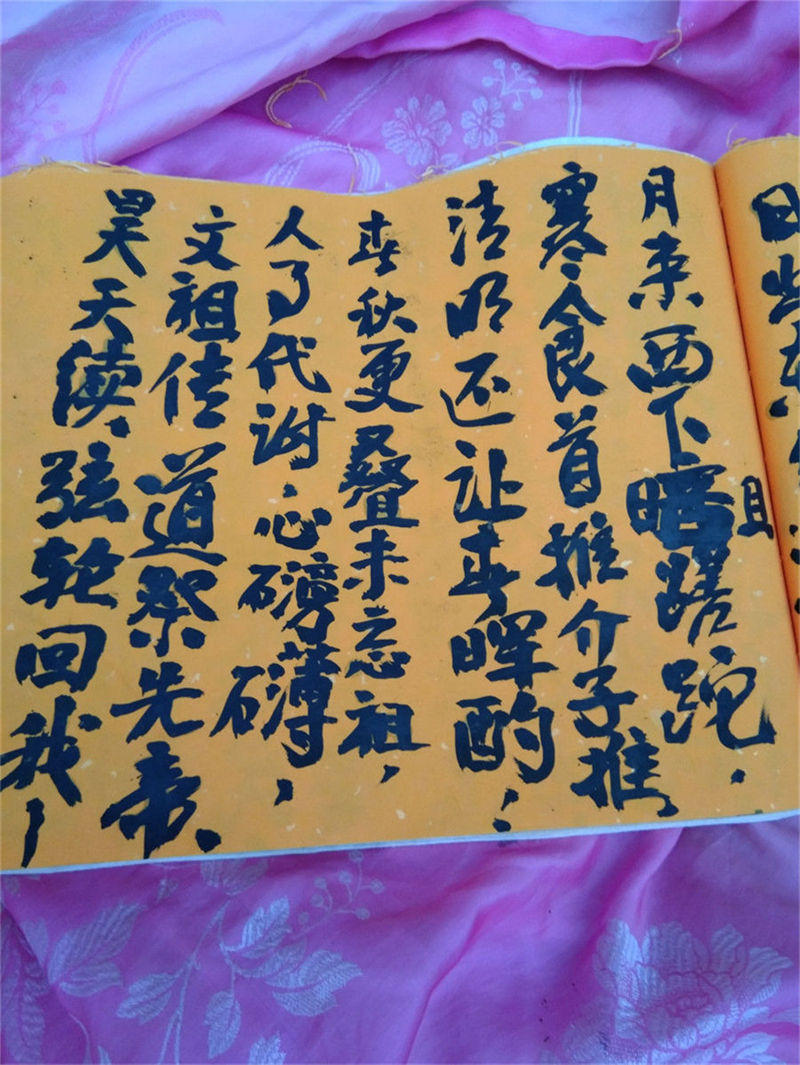 月来西下蹉跎.
且
寒食首推介子推,
清明还让春晖酌!
春秋更叠未忘祖,
人代谢.心磅礴,
文祖传道祭先帝、
昊天续弦轮回我,